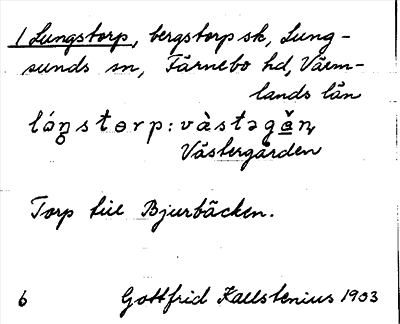 1 Lungstorp, bergstorp sk, Lung-
sunds sn, Färnebo hd, Värm-
lands län
Västergården
Torp till Bjurbäcken.
6 Gottfrid Kallstenius 1903